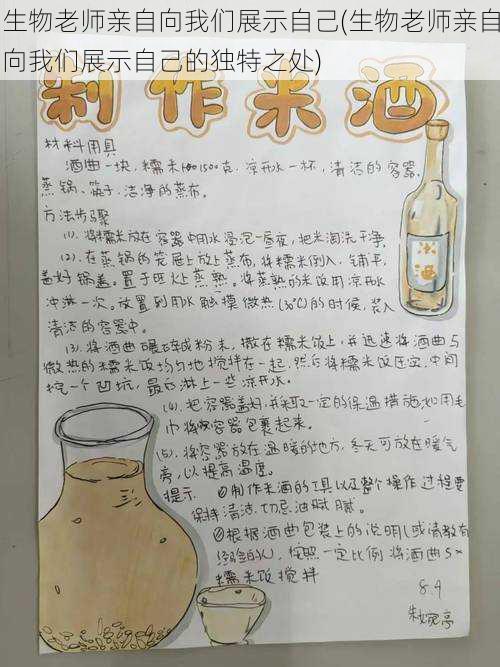 生物老师亲自向我们展示自己(生物老师亲自
向我们展示自己的独特之处)
制作米酒
材料用具
酒曲一块,糯米1500克,凉开水一杯,清洁的容器,
蒸锅、筷子、洁净的蒸布。
方法步骤
(1). 将糯米放在容器中用水浸泡一昼夜,把米淘洗干净。
(2). 在蒸锅的笼屉上放上蒸布,将糯米倒入,铺平,
盖好锅盖。置于旺火上蒸熟。将蒸熟的米饭用凉开水
冲淋一次。放置到用水触摸微热(30℃)的时候,装入
清洁的容器中。
(3). 将酒曲碾碎成粉末,撒在糯米饭上,并迅速将酒曲与
微热的糯米饭均匀地搅拌在一起,然后将糯米饭压实,中间
挖一个凹坑,最后淋上一些凉开水。
(4). 把容器盖好,并采取一定的保温措施,如用毛
巾将容器包裹起来。
(5). 将容器放在温暖的地方,冬天可放在暖气
旁,以提高温度。
提示 ①制作米酒的工具以及整个操作过程要
保持清洁,切忌油腻。
②根据酒曲包装上的说明(或请教有
经验的人),按照一定比例将酒曲与
糯米饭搅拌
8.4
米酒